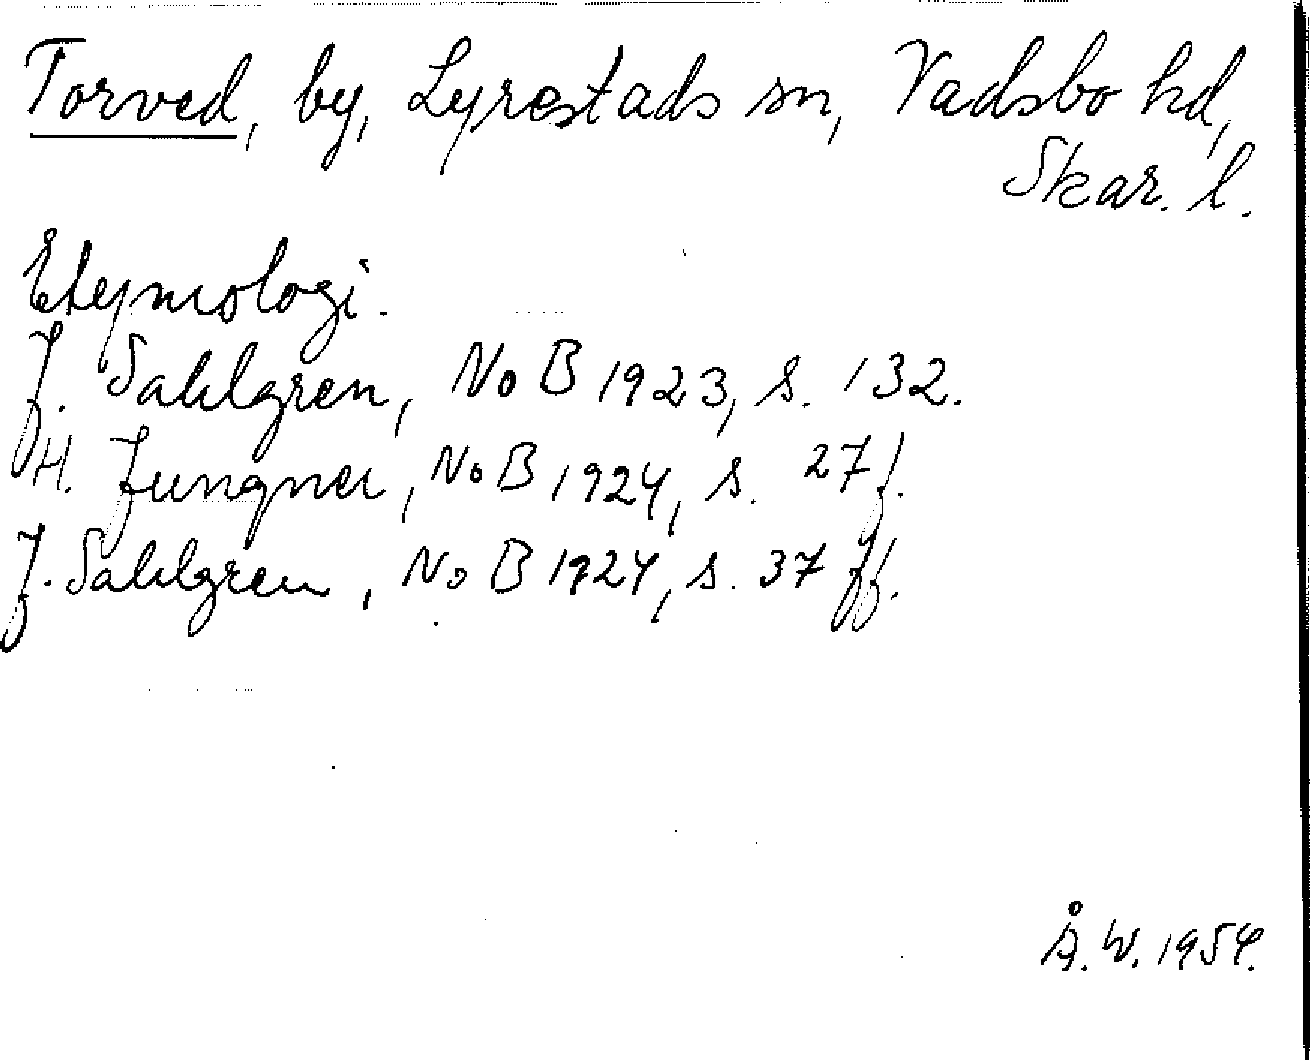 Torved, by, Lyrestads sn, Vadsbo hd,
Skar. l.
Etymologi.
J. Sahlgren, NoB 1923, s. 132.
H. Jungner, NoB 1924, s. 27 f.
J. Sahlgren, NoB 1924, s. 37 ff.
Å. W. 1954.